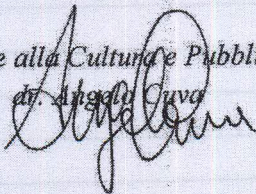 e alla Cultura e Pubbli
dr. Angelo Cuva